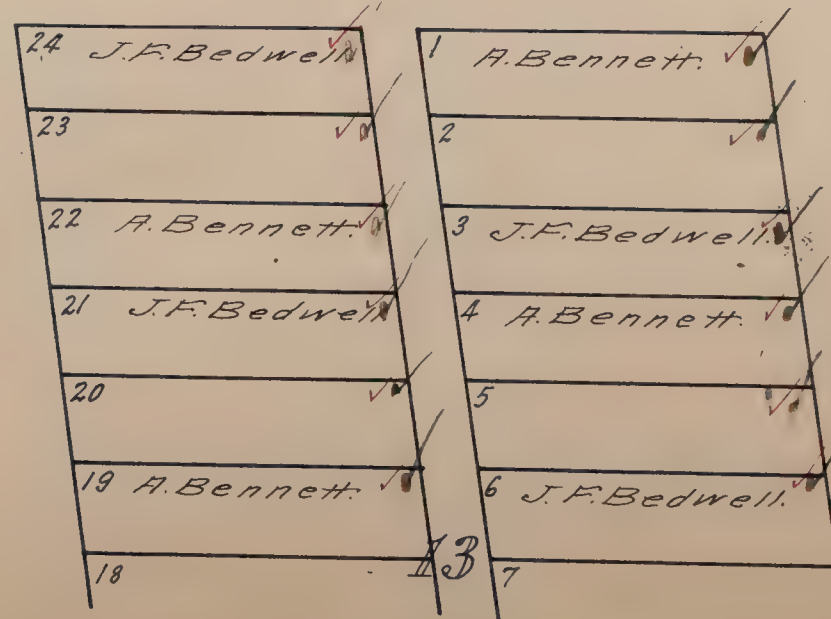 24 J.F.Bedwell
23
22 A.Bennett.
21 J.F.Bedwell
20
19 A.Bennett.
18
13
1 A.Bennett.
2
3 J.F.Bedwell.
4 A.Bennett.
5
6 J.F.Bedwell.
7